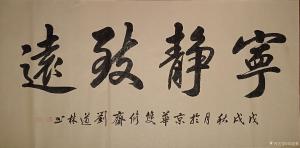 寧靜致遠
戊戌秋月於京華雙修齋劉道林書